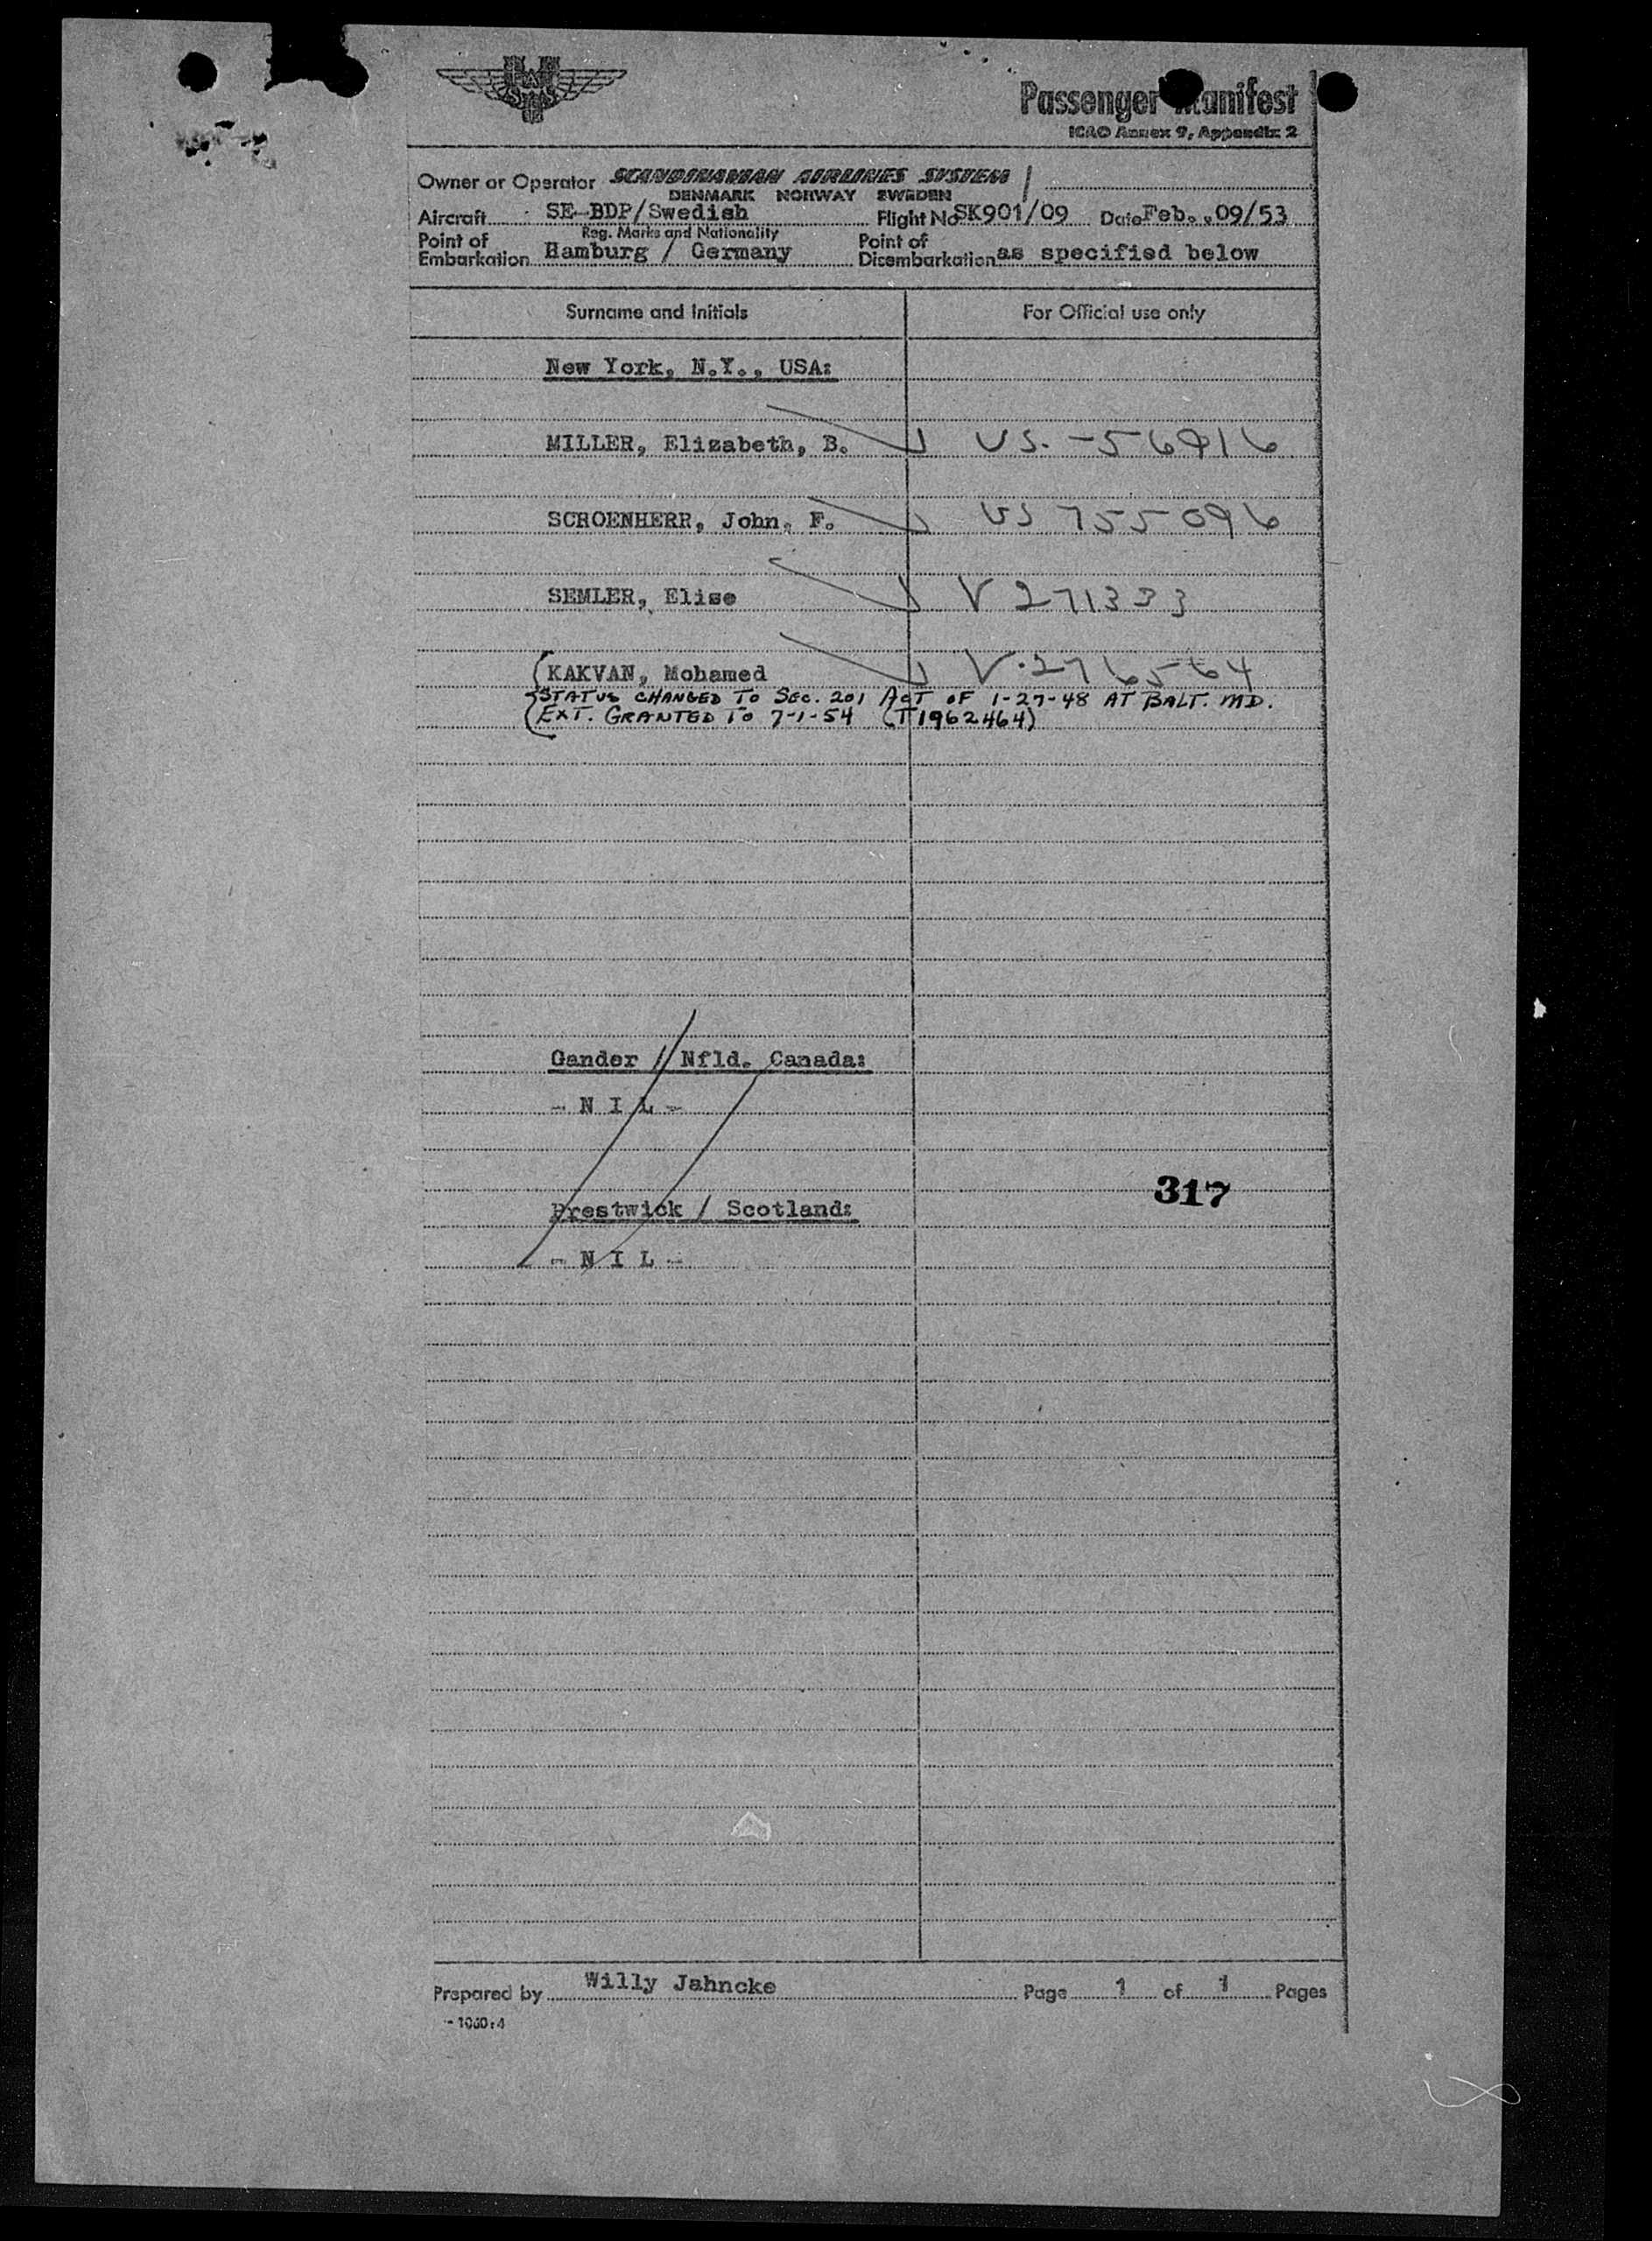 SAS
Passenger Manifest
ICAO Annex 9, Appendix 2
Owner or Operator SCANDINAVIAN AIRLINES SYSTEM
DENMARK NORWAY SWEDEN
Aircraft SE-BDP/Swedish Flight No SK901/09 Date Feb., 09/53
Reg. Marks and Nationality
Point of Embarkation Hamburg / Germany Point of Disembarkation as specified below
Surname and Initials For Official use only
New York, N.Y., USA:
MILLER, Elizabeth, B. US. -56916
SCHOENHERR, John, F. US 755096
SEMLER, Elise V 271333
(KAKVAN, Mohamed V.276564
STATUS CHANGED TO SEC. 201 ACT OF 1-27-48 AT BALT. MD.
(EXT. GRANTED TO 7-1-54 (T1962464)
Gander / Nfld. Canada:
- N I L -
317
Prestwick / Scotland:
- N I L -
Prepared by Willy Jahncke Page 1 of 1 Pages